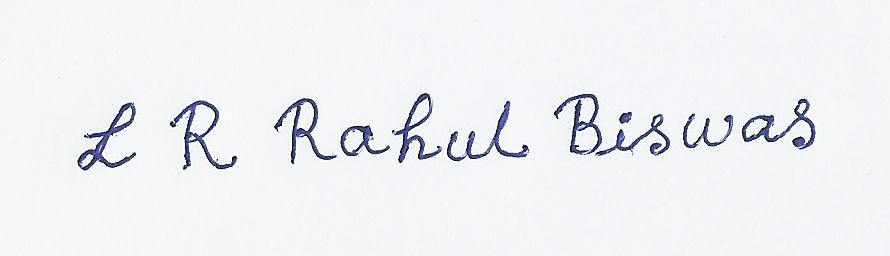 L R Rahul Biswas